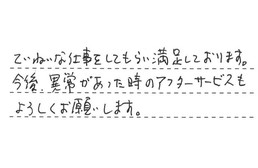 ていねいな仕事をしてもらい満足しております。
今後、異常があった時のアフターサービスも
よろしくお願いします。